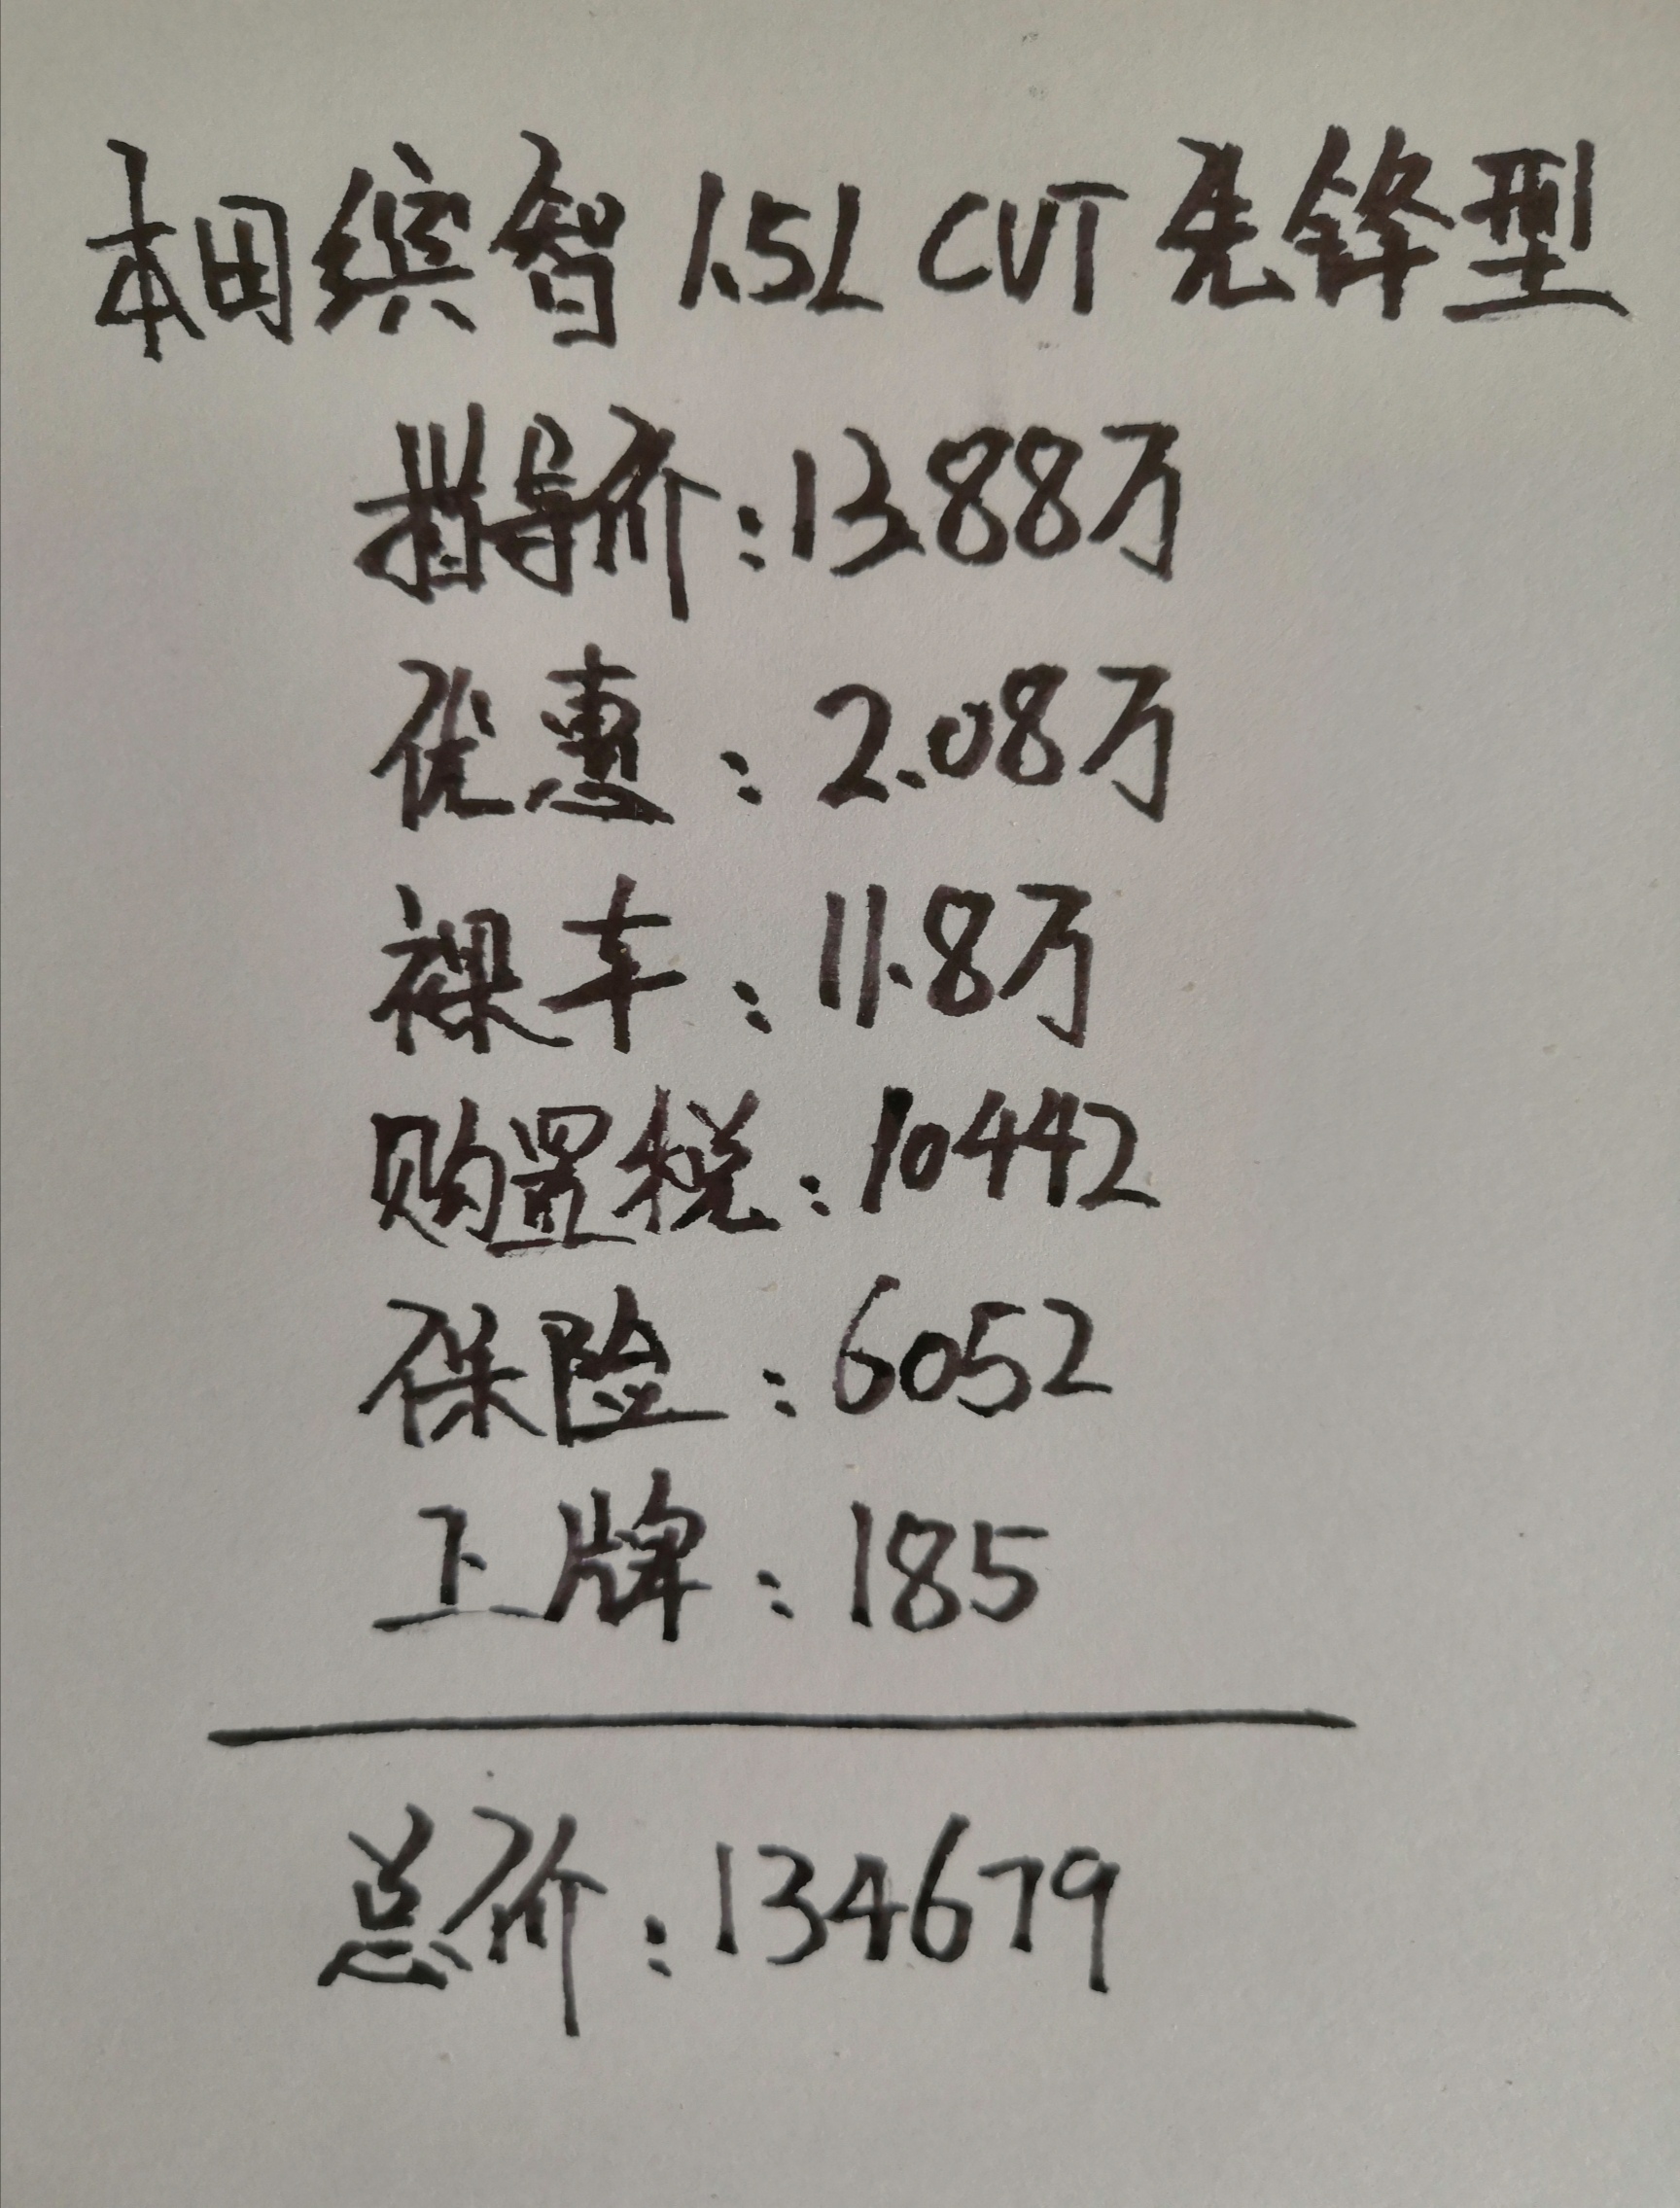 本田缤智 1.5L CVT 先锋型
指导价:13.88万
优惠:2.08万
裸车:11.8万
购置税:10442
保险:6052
上牌:185
总价:134679